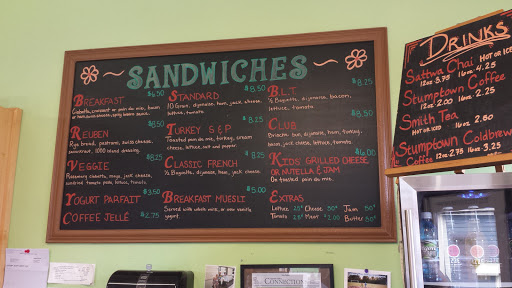 SANDWICHES
BREAKFAST $6.50
Ciabatta, croissant or pain du mie, bacon
or ham and cheese, spicy bacon sauce.
REUBEN $8.50
Rye bread, pastrami, swiss cheese,
sauerkraut, 1000 island dressing.
VEGGIE $8.25
Rosemary ciabatta, mayo, jack cheese,
sundried tomato pesto, lettuce, tomato.
YOGURT PARFAIT $3.50
COFFEE JELLÉ $2.75
STANDARD $8.50
10 Grain, dijonaise, ham, jack, cheese,
lettuce, tomato.
TURKEY S & P $8.50
Toasted pain du mie, turkey, cream
cheese, lettuce, salt and pepper.
CLASSIC FRENCH $8.25
½ Baguette, dijonaise, ham, jack cheese.
BREAKFAST MUESLI $5.00
Served with whole milk, or non vanilla
yogurt.
BLT $8.25
½ Baguette, dijonaise, bacon,
lettuce, tomato
CLUB $8.25
Brioche bun, dijonaise, ham, turkey,
bacon, jack cheese, lettuce, tomato
KIDS GRILLED CHEESE $6.00
OR NUTELLA & JAM
On toasted pain du mie.
EXTRAS
Lettuce .25¢ Cheese .50¢ Jam .50¢
Tomato .25¢ Meat $2.00 Butter .50¢
DRINKS
Sattwa Chai HOT OR ICED
12oz 3.75 16oz 4.25
Stumptown Coffee
12oz 2.00 16oz 2.25
Smith Tea
HOT OR ICED 16oz 2.50
Stumptown Coldbrew
Coffee 12oz 2.75 16oz 3.25
CONNECTION